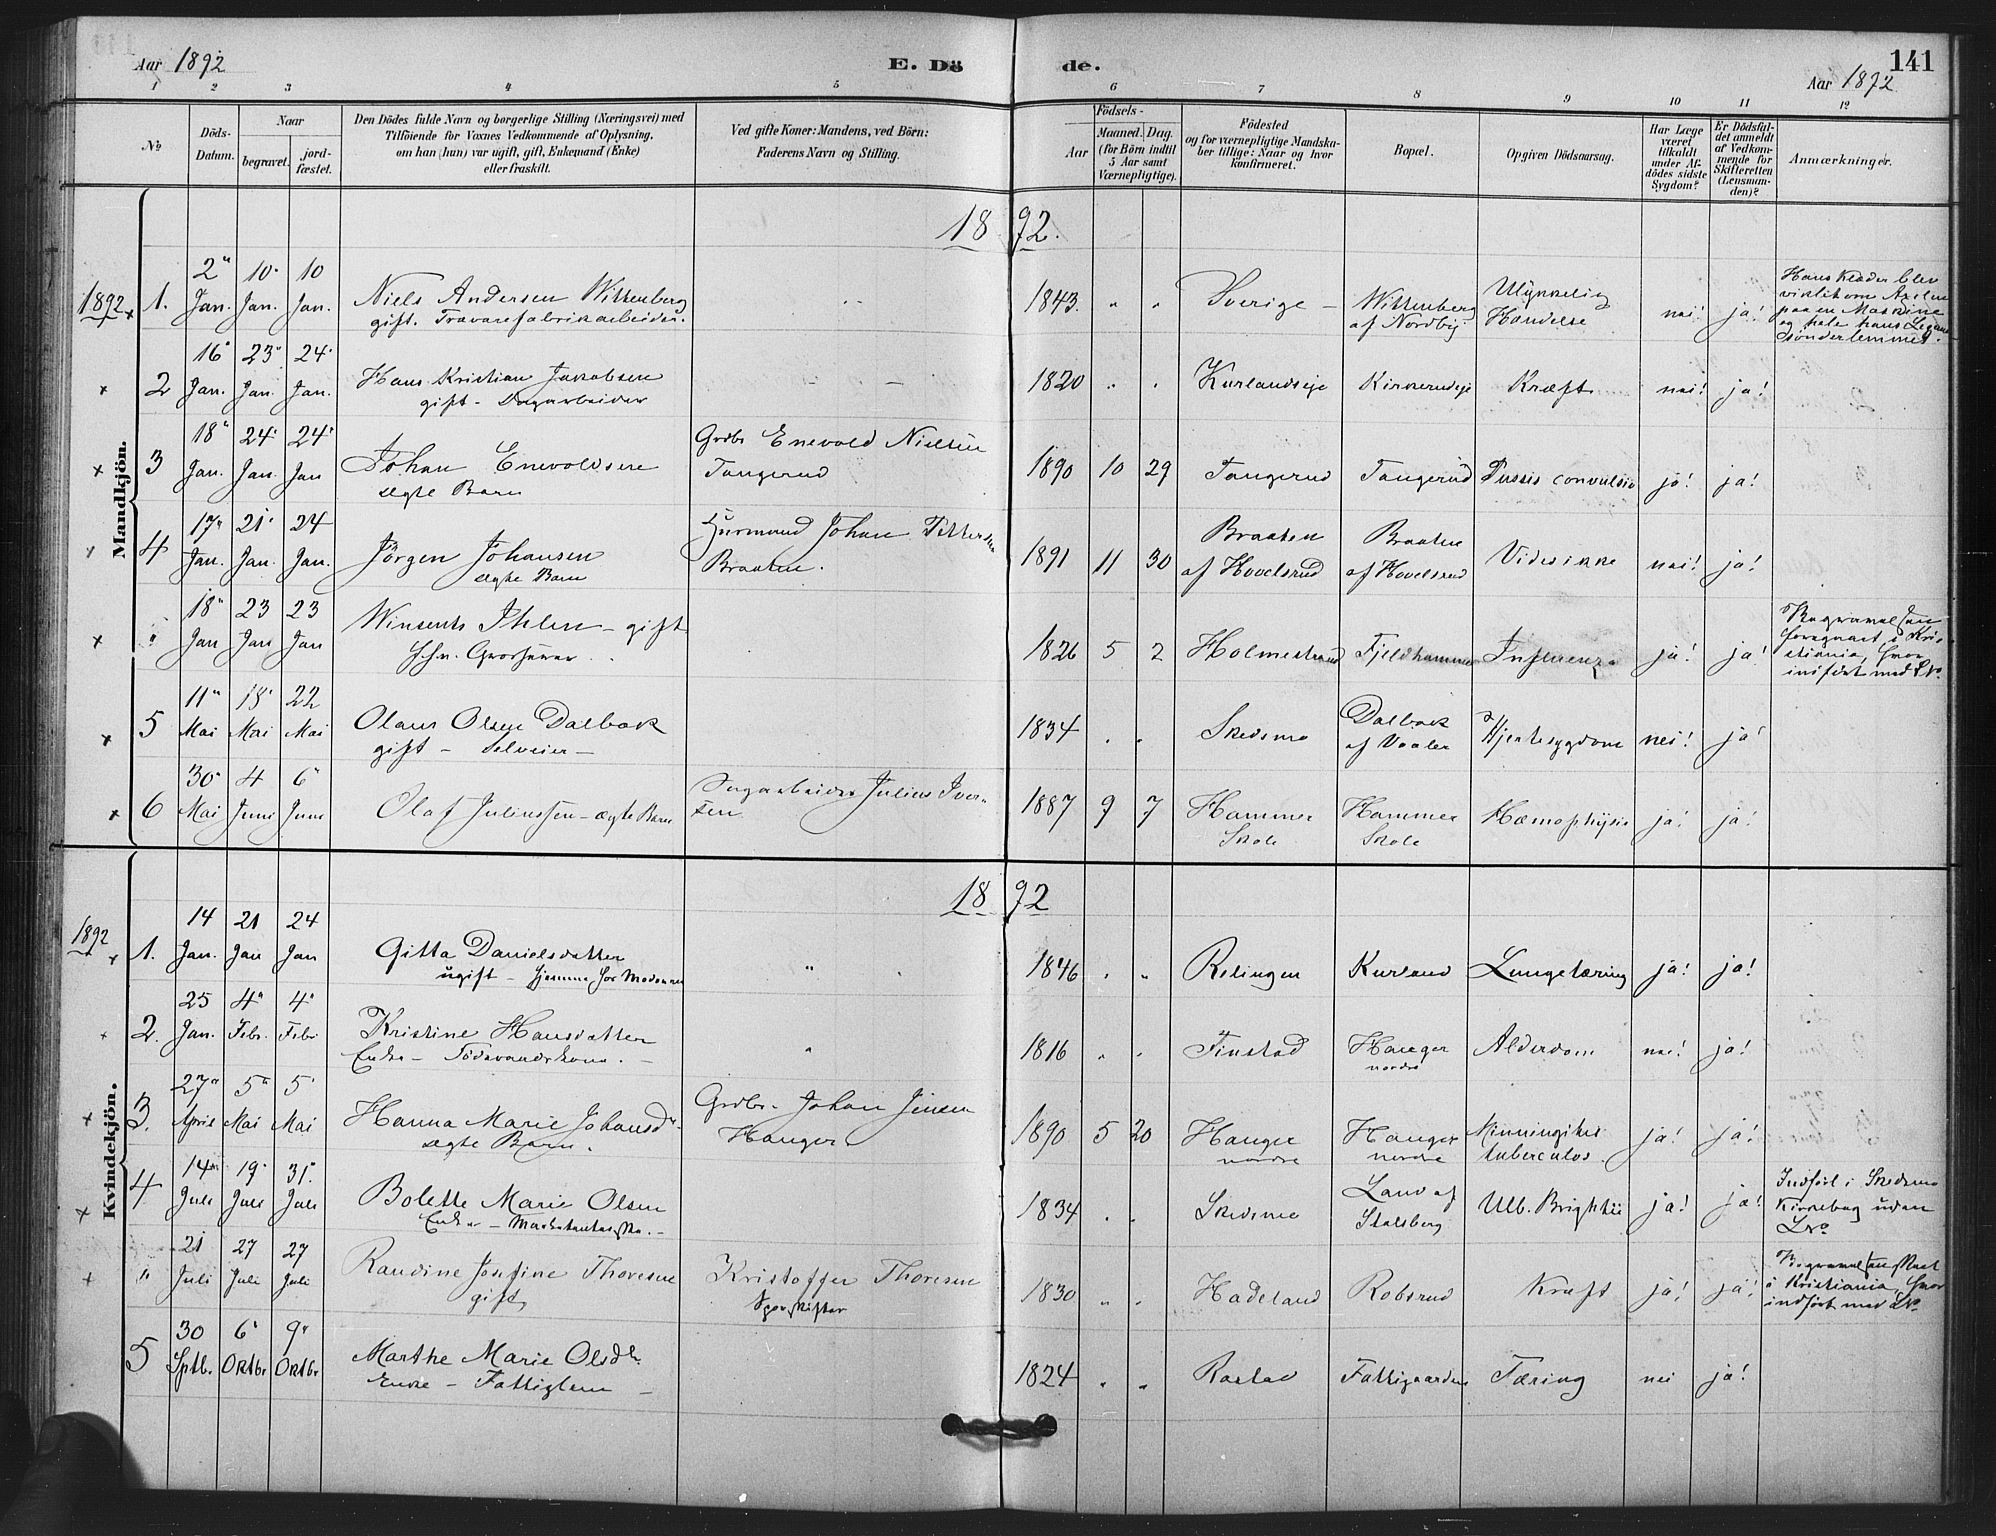 Aar 1892
E. Dö de.
141
Aar 1892
1 2 3 4 5 6 7 8 9 10 11 12
No
Döds-Datum.
Naar
begravet.
jord-fæstet.
Den Dödes fulde Navn og borgerlige Stilling (Næringsvei) med
Tilföiende for Voxnes Vedkommende af Oplysning,
om han (hun) var ugift, gift, Enkemand (Enke)
eller fraskilt.
Ved gifte Koner: Mandens, ved Börn:
Faderens Navn og Stilling.
Födsels-
Aar
Maaned. Dag.
(for Börn indtil
5 Aar samt
Værnepligtige).
Födested
og for værnepligtige Mandska-
ber tillige: Naar og hvor
konfirmeret.
Bopæl.
Opgiven Dödsaarsag.
Har Læge
været
tilkaldt
under Af-
dödes sidste
Sygdom?
Er Dödsfal-
det anmeldt
af Vedkom-
mende for
Skifteretten
(Lensman-
den)?
Anmærkninger.
18 92.
Mandkjön.
1892 1. 2" Jan. 10" Jan. 10 Jan. Niels Andersen Wittenberg
gift. Trævarefabrikarbeider.
1843. " " Sverige - Wittenberg af Nordby. Ulykkelig Hændelse nei! ja!
Hans Klæder blev
viklet om Axelen
paa en Maskine
og hele hans Legeme
sönderlemmet.
2 16" Jan. 23" Jan. 24" Jan. Hans Kristian Jakobsen
gift - Dagarbeider
1820 " " Kurlandseje Kirkerudeje Kræft nei! ja!
3 18" Jan. 24" Jan. 24" Jan Johan Enevoldsen
ægte Barn
Grdbr Enevold Nielsen
Tangerud
1890 10 29 Tangerud Tangerud Tussis convulsiv ja! ja!
4 17" Jan. 21" Jan. 24 Jan. Jörgen Johansen
ægte Barn
Husmand Johan Pettersen
Braaten.
1891 11 30 Braaten af Hovelsrud Braaten af Hovelsrud Vides ikke nei! ja!
" 18" Jan 23 Jan 23 Jan Winsents Ihlen - gift
Fhv. Grosserer
1826 5 2 Holmestrand Fjeldhammer Influenza ja! ja!
Begravelsen
foregaaet i Kri-
stiania, hvor
indfört med No
5 11" Mai 18" Mai 22 Mai Olaus Olsen Dalbak
gift - Selveier -
1834 " " Skedsmo Dalbak af Vaaler Hjertesygdom nei! ja!
6 30" Mai 4 Juni 6" Juni Olaf Juliussen - ægte Barn
Dagarbeider Julius Iver-
sen
1887 9 7 Hammer Skole Hammer Skole Hæmophysis ja! ja!
18 92
Kvindekjön.
1892 1. 14 Jan. 21 Jan 24 Jan Gitta Danielsdatter
ugift - hjemme hos Moderen
" 1846 " " Relingen Kurland Lungetæring ja! ja!
2. 25 Jan. 4" Febr. 4" Febr Kristine Hansdatter
Enke - Födevandskone. -
" 1816 " " Finstad Hauger nordre Alderdom nei! ja!
3. 27" April 5" Mai 5" Mai Hanna Marie Johansdr.
ægte Barn.
Grdbr. Johan Jensen
Hauger
1890 5 20 Hauger nordre Hauger nordre Minningitis tuberculos. ja! ja!
4 14" Juli 19" Juli 31" Juli Bolette Marie Olsen
Enke -
1834 " " Skedsmo Land af Stalsberg Mb. Brightii ja! ja!
Indfört i Skedsmo
Kirkebog uden
No
" 21 Juli 27 Juli 27 Juli Randine Josefine Thoresen
gift
Kristoffer Thoresen
Sporskifter
1830 " " Hadeland Robsrud Kræft ja! ja!
Begravelsen skeet
i Kristiania, hvor
indfört med No
5 30 Sptb. 6" Oktbr 9" Oktbr Marthe Marie Olsdtr.
Enke - Fattiglem -
1824 " " Rastad Fattiggaarden Tæring nei ja!